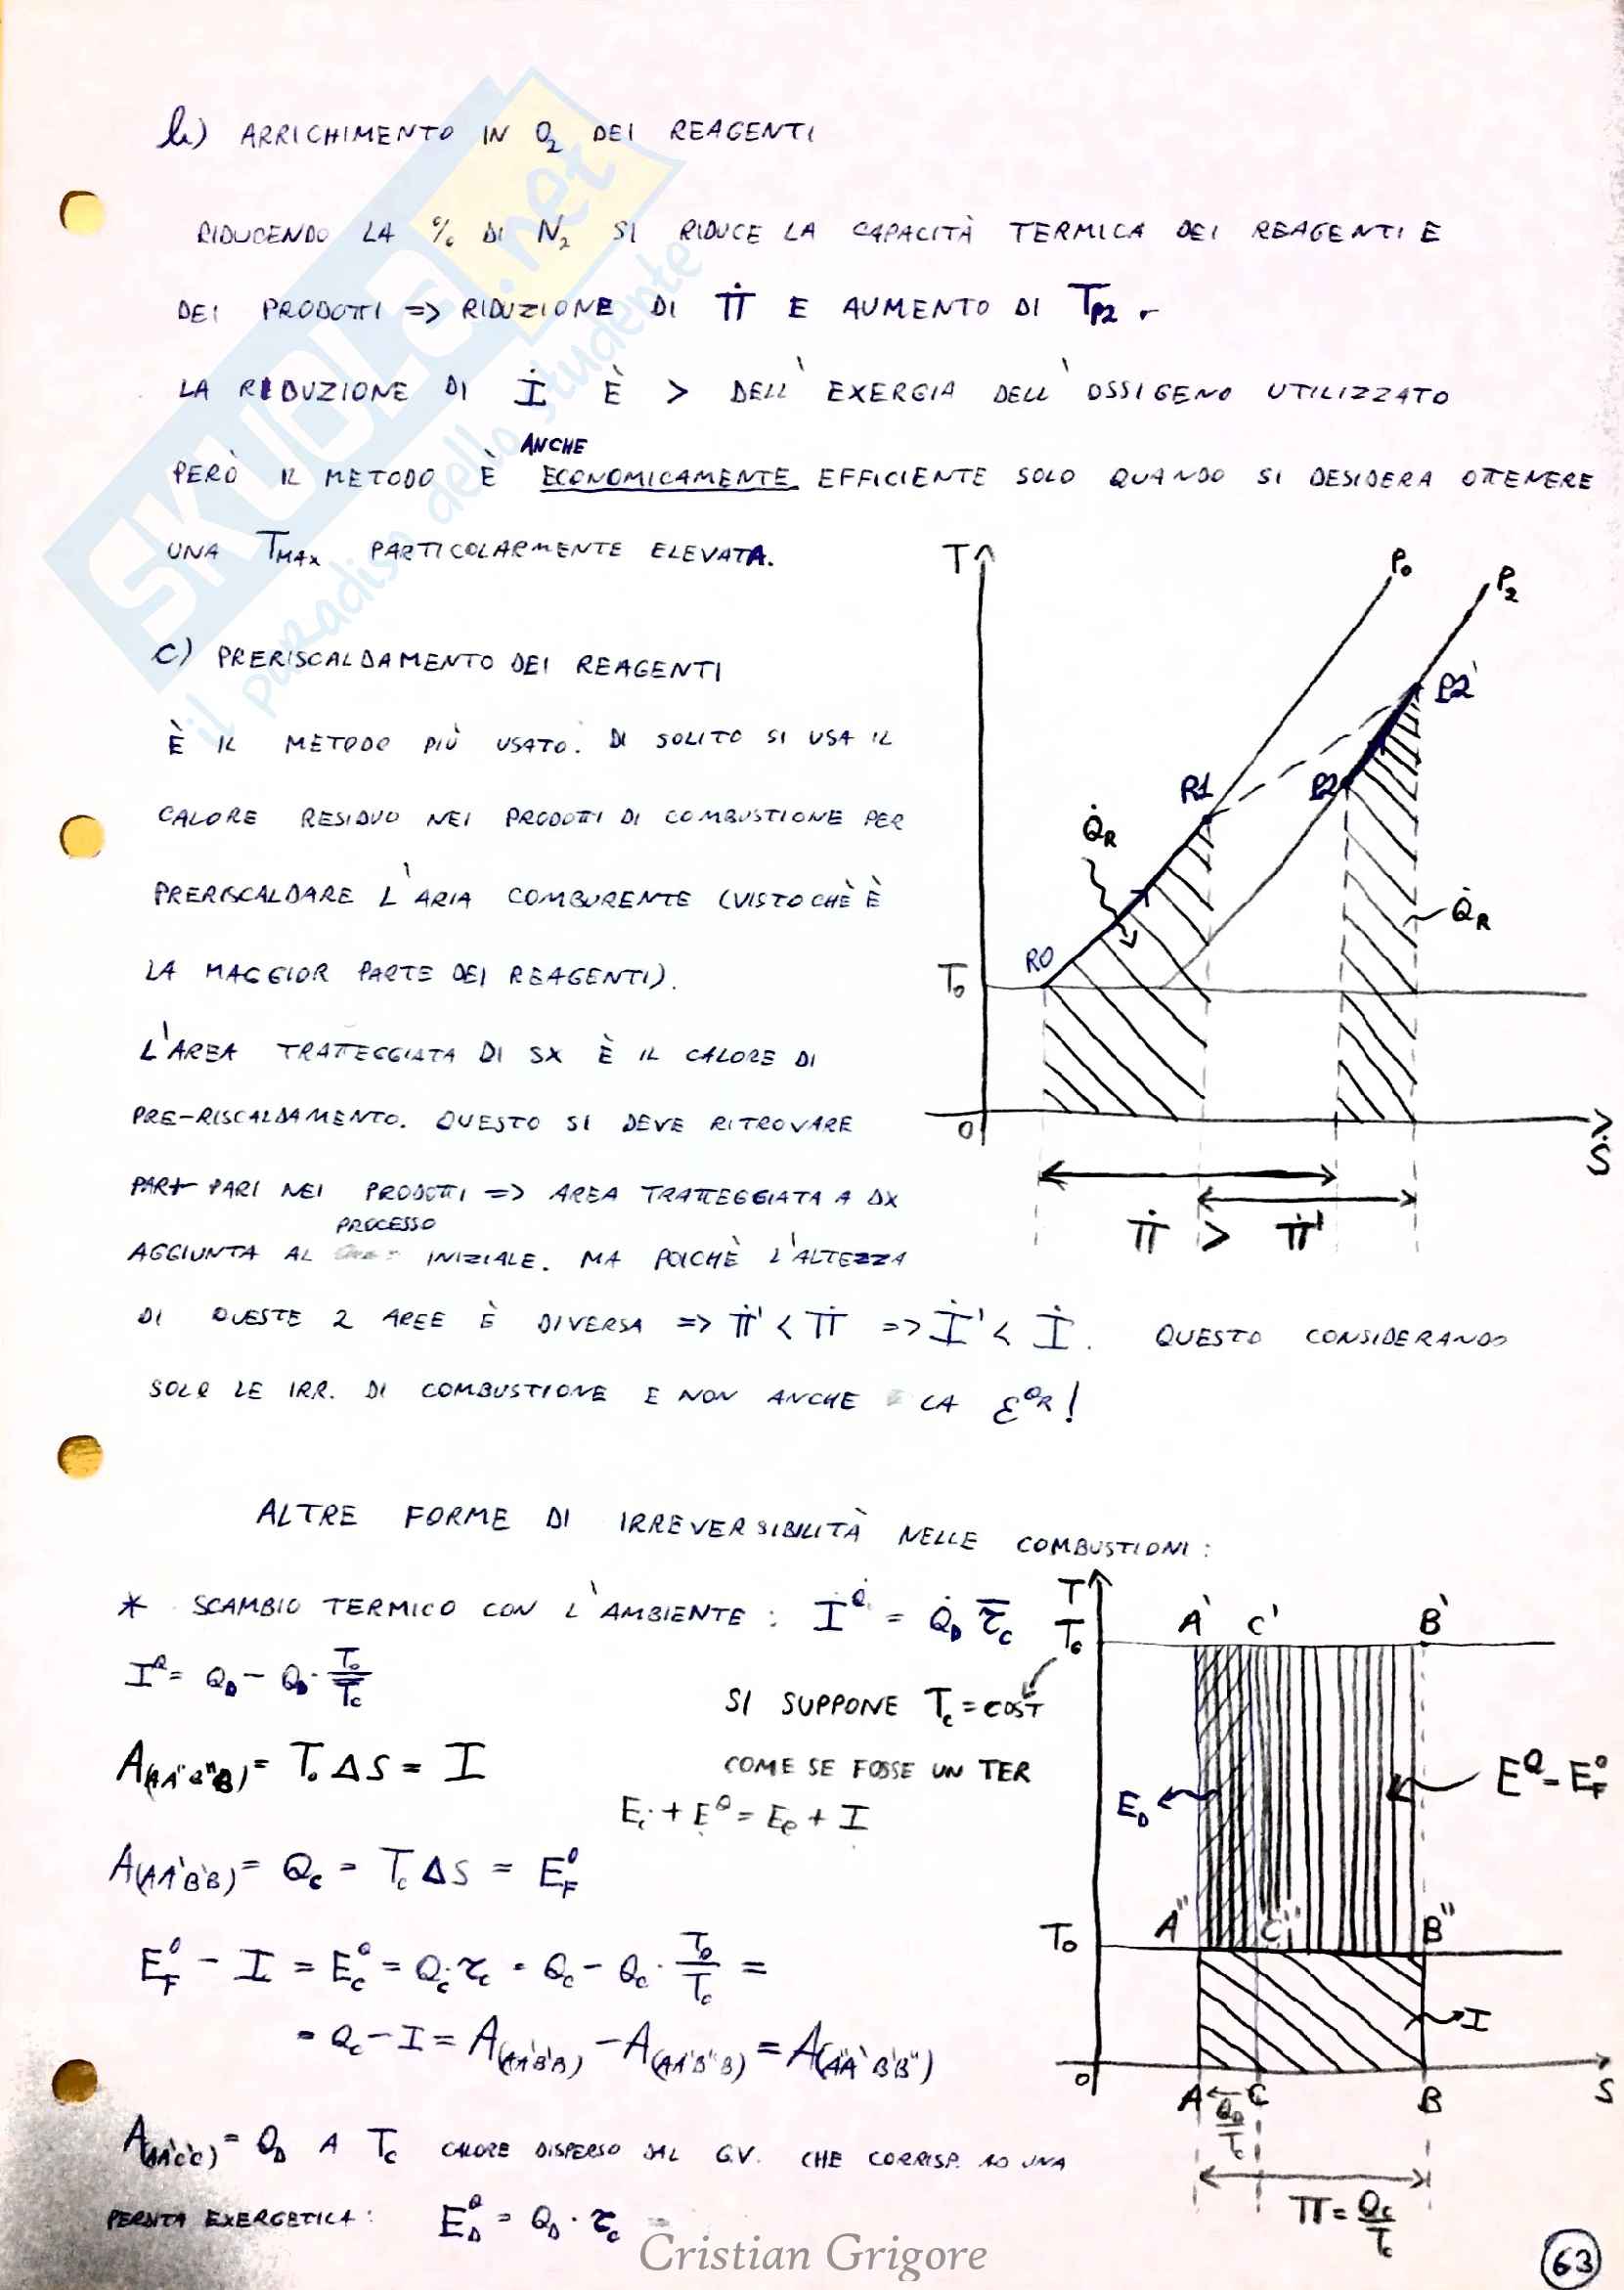 b) ARRICHIMENTO IN O₂ DEI REAGENTI
RIDUCENDO LA % DI N₂ SI RIDUCE LA CAPACITÀ TERMICA DEI REAGENTI E
DEI PRODOTTI => RIDUZIONE DI π̇ E AUMENTO DI T_P2
LA RIDUZIONE DI İ È > DELL'EXERGIA DELL'OSSIGENO UTILIZZATO
ANCHE
PERÒ IL METODO È ECONOMICAMENTE EFFICIENTE SOLO QUANDO SI DESIDERA OTTENERE
UNA T_MAX PARTICOLARMENTE ELEVATA.
C) PRERISCALDAMENTO DEI REAGENTI
È IL METODO PIÙ USATO. DI SOLITO SI USA IL
CALORE RESIDUO NEI PRODOTTI DI COMBUSTIONE PER
PRERISCALDARE L'ARIA COMBURENTE (VISTOCHÈ È
LA MAGGIOR PARTE DEI REAGENTI).
L'AREA TRATTEGGIATA DI SX È IL CALORE DI
PRE-RISCALDAMENTO. QUESTO SI DEVE RITROVARE
PARI PARI NEI PRODOTTI => AREA TRATTEGGIATA A DX
PROCESSO
AGGIUNTA AL INIZIALE. MA POICHÈ L'ALTEZZA
DI QUESTE 2 AREE È DIVERSA => π̇' < π̇ => İ' < İ. QUESTO CONSIDERANDO
SOLO LE IRR. DI COMBUSTIONE E NON ANCHE LA ε^QR!
T
P₀
P₂
P2'
R1
P2
Q̇_R
Q̇_R
R0
T₀
0
Ṡ
π̇ > π̇'
ALTRE FORME DI IRREVERSIBILITÀ NELLE COMBUSTIONI:
* SCAMBIO TERMICO CON L'AMBIENTE: İ^Q̇ = Q̇_D τ̄_c
I^Q = Q_D - Q_D · T₀/T̄_c
SI SUPPONE T_c = COST
A(AA"B"B) = T₀ ΔS = I
COME SE FOSSE UN TER
E_i + E^Q = E_e + I
A(AA'B'B) = Q_c = T_c ΔS = E_F^0
E_F^0 - I = E_c^Q = Q_c τ_c = Q_c - Q_c · T₀/T_c =
= Q_c - I = A(AA'B'B) - A(AA"B"B) = A(A"A'B'B")
A(AA'C'C) = Q_D A T_c CALORE DISPERSO DAL G.V. CHE CORRISP. AD UNA
PERDITA EXERGETICA: E_D^Q = Q_D · τ_c
T
T_c
A' C' B'
E_D
E^Q = E_F^0
A" C" B"
T₀
I
0
A C B
S
Q_D/T_c
π = Q_c/T_c
SKUOLA.net
il paradiso dello studente
Cristian Grigore
63